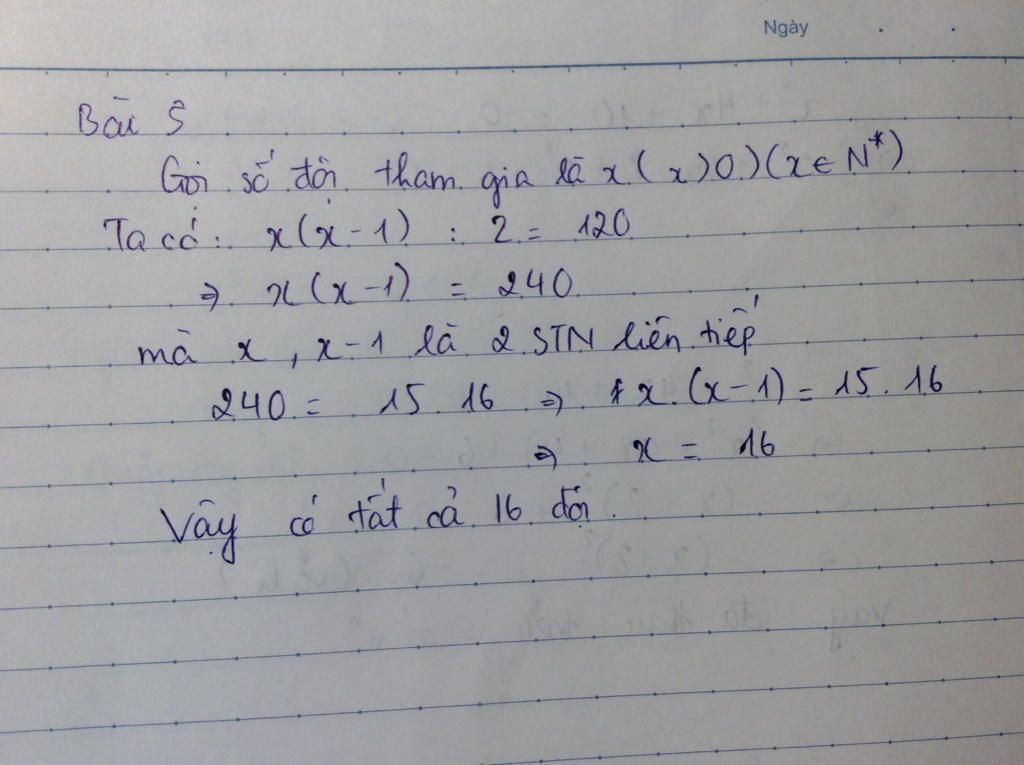 Ngày
Bài 5
Gọi số đội tham gia là x (x>0)(x∈N*)
Ta có: x(x-1) : 2 = 120
⇒ x(x-1) = 240
mà x, x-1 là 2 STN liên tiếp
240 = 15.16 ⇒ x.(x-1) = 15.16
⇒ x = 16
Vậy có tất cả 16 đội.